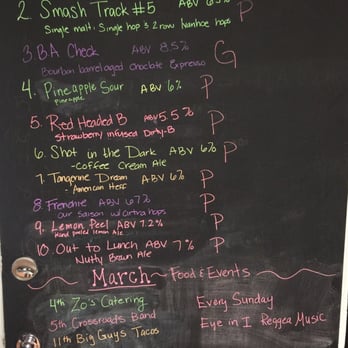 2. Smash Track #5 ABV 6.5%
Single malt. Single hop & 2 row Ivanhoe hops
3. BA Check ABV 8.5% G
Bourbon barrel aged Chocolate Espresso
4. Pineapple Sour ABV 6% P
Pineapple
5. Red Headed B ABV 5.5% P
Strawberry infused Dirty-B
6. Shot in the Dark ABV 6% P
-Coffee Cream Ale
7. Tangerine Dream ABV 6% P
- American Heff
8. Frenchie ABV 6.7% P
Our Saison w/ citra hops
9. Lemon Peel ABV 7.2% P
Hand peeled lemon Ale
10. Out to Lunch ABV 7% P
Nutty Brown Ale
March Food & Events
4th Zo's Catering
5th Crossroads Band
11th Big Guys Tacos
Every Sunday
Eye in I Reggea Music